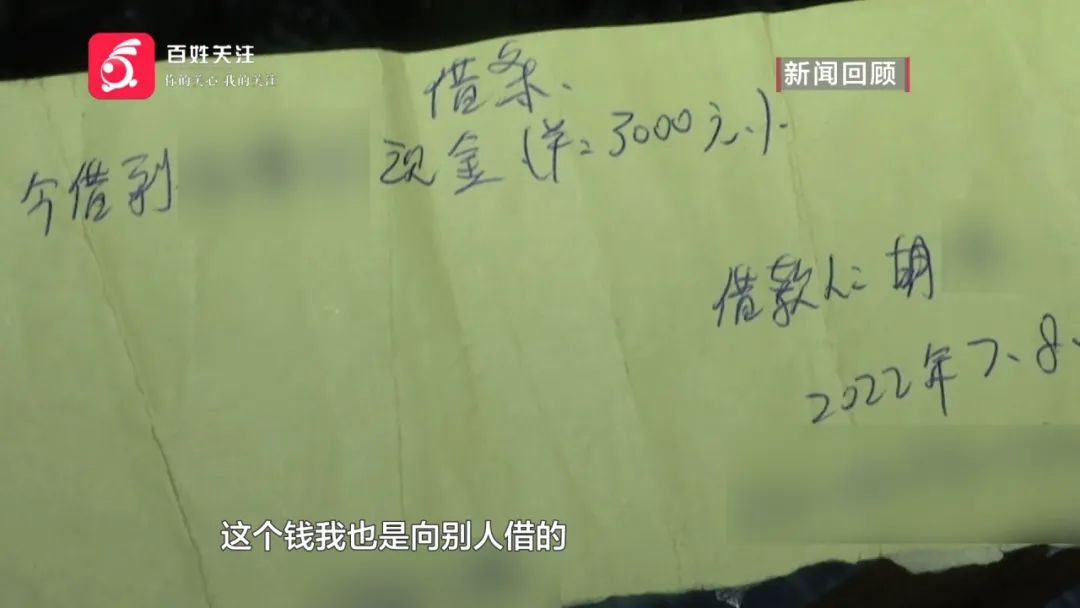 百姓关注
你的关心 我的关注
新闻回顾
借条、
今借到 现金(羊:3000元、).
借款人: 胡
2022年7、8、
这个钱我也是向别人借的